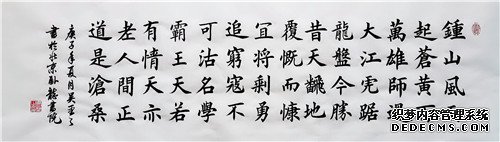 鍾山風雨
起蒼黃百
萬雄師過
大江虎踞
龍盤今勝
昔天翻地
覆慨而慷
宜將剩勇
追窮寇不
可沽名學
霸王天若
有情天亦
老人間正
道是滄桑
庚子年夏月吴
書於北京卧龍書院
织梦内容管理系统
DEDECMS.COM